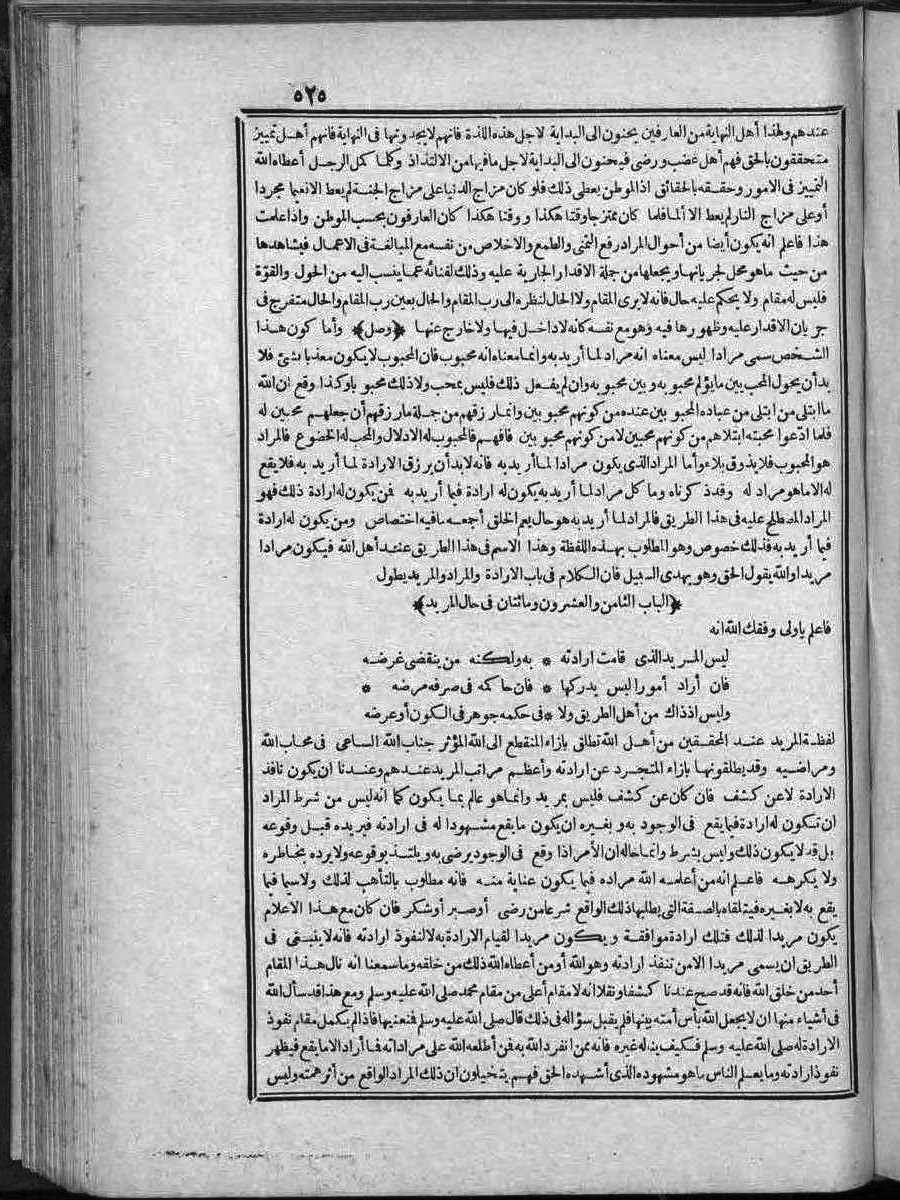 ٥٢٥
عندهم ولهذا أهل النهاية من العارفين يحنون الى البداية لاجل هذه اللذة فانهم لا يجدونها فى النهاية فانهم أهل تمييز
متحققون بالحق فهم أهل غضب ورضى فيحنون الى البداية لاجل ما فيها من الالتذاذ وكلما كمل الرجل أعطاه الله
التمييز فى الامور وحققه بالحقائق اذ الموطن يعطى ذلك فلو كان مزاج الدنيا على مزاج الجنة لم يعط الا نعيما مجردا
أو على مزاج النار لم يعط الا ألما فلما كان ممتزجا وقتا هكذا ووقتا هكذا كان العارفون بحسب الموطن واذا علمت
هذا فاعلم انه يكون أيضا من أحوال المراد رفع التمنى والطمع والاخلاص من نفسه مع المبالغة فى الاعمال فيشاهدها
من حيث ما هو محل لجريانها ويجعلها من جملة الاقدار الجارية عليه وذلك لفنائه عما ينسب اليه من الحول والقوّة
فليس له مقام ولا يحكم عليه حال فانه لا يرى المقام ولا الحال لنظره الى رب المقام والحال بعين رب المقام والحال متفرج فى
جريان الاقدار عليه وظهورها فيه وهو مع نفسه كانه لا داخل فيها ولا خارج عنها ﴿وصل﴾ وأما كون هذا
الشخص سمى مرادا ليس معناه انه مراد لما أريد به وانما معناه انه محبوب فان المحبوب لا يكون معذبا بشئ فلا
بدأن يحول المحب بين ما يؤلم محبوبه وبين محبوبه وان لم يفعل ذلك فليس بمحب ولا ذلك محبوبا وكذا وقع ان الله
ما ابتلى من ابتلى من عباده المحبوبين عنده من كونهم محبوبين وانما رزقهم من جملة ما رزقهم أن جعلهم محبين له
فلما ادّعوا محبته ابتلاهم من كونهم محبين لا من كونهم محبوبين فافهم فالمحبوب له الادلال والمحب له الخضوع فالمراد
هو المحبوب فلا يذوق بلاء وأما المراد الذى يكون مرادا لما أريد به فانه لا بدأن يرزق الارادة لما أريد به فلا يقع
له الا ما هو مراد له وقد ذكرناه وما كل مراد لما أريد به يكون له ارادة فيما أريد به فمن يكون له ارادة ذلك فهو
المراد المصطلح عليه فى هذا الطريق فالمراد لما أريد به هو حال يعم الخلق أجمعه ما فيه اختصاص ومن يكون له ارادة
فيما أريد به فذلك خصوص وهو المطلوب بهذه اللفظة وهذا الاسم فى هذا الطريق عند أهل الله فيكون مرادا
مريدا والله يقول الحق وهو يهدى السبيل فان الكلام فى باب الارادة والمراد والمريد يطول
﴿الباب الثامن والعشرون ومائتان فى حال المريد﴾
فاعلم يا ولى وفقك الله انه
ليس المريد الذى قامت ارادته * به ولكنه من ينقضى غرضه
فان أراد أمورا ليس يدركها * فان حاكمه فى صرفه مرضه *
وليس اذ ذاك من أهل الطريق ولا * فى حكمه جوهر فى الكون أو عرضه
لفظة المريد عند المحققين من أهل الله تطلق بازاء المنقطع الى الله المؤثر جناب الله الساعى فى محاب الله
ومراضيه وقد يطلقونها بازاء المتجرد عن ارادته وأعظم مراتب المريد عندهم وعندنا ان يكون نافذ
الارادة لا عن كشف فان كان عن كشف فليس بمريد وانما هو عالم بما يكون كما انه ليس من شرط المراد
ان تكون له ارادة فيما يقع فى الوجود به وبغيره ان يكون ما يقع مشهودا له فى ارادته فيريده قبل وقوعه
بل قد لا يكون ذلك وليس بشرط وانما حاله ان الأمر اذا وقع فى الوجود يرضى به ويلتذ بوقوعه ولا يرده بخاطره
ولا يكرهه فاعلم انه من أعلمه الله مراده فيما يكون عناية منه فانه مطلوب بالتأهب لذلك ولا سيما فيما
يقع به لا بغيره فيتلقاه بالصفة التى يطلبها ذلك الواقع شرعا من رضى أو صبر أو شكر فان كان مع هذا الاعلام
يكون مريدا لذلك فتلك ارادة موافقة ويكون مريدا لقيام الارادة به لا لنفوذ ارادته فانه لا ينبغى فى
الطريق ان يسمى مريدا الا من تنفذ ارادته وهو الله أو من أعطاه الله ذلك من خلقه وما سمعنا انه نال هذا المقام
أحد من خلق الله فانه قد صح عندنا كشفا ونقلا انه لا مقام أعلى من مقام محمد صلى الله عليه وسلم ومع هذا قد سأل الله
فى أشياء منها ان لا يجعل الله بأس أمته بينها فلم يقبل سؤاله فى ذلك قال صلى الله عليه وسلم فمنعنيها فاذا لم يكمل مقام نفوذ
الارادة له صلى الله عليه وسلم فكيف يناله غيره فانه ممن انفرد الله به فمن أطلعه الله على مراداته فما أراد الا ما يقع فيظهر
نفوذ ارادته وما يعلم الناس ما هو مشهوده الذى أشهده الحق فهم يتخيلون ان ذلك المراد الواقع من أثر همته وليس